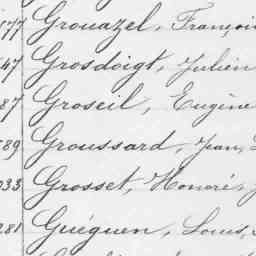 177 Grouazel, François
47 Grosdoigt, Julien
87 Groseil, Eugène
589 Groussard, Jean,
033 Grosset, Honoré,
281 Guéguen, Louis,